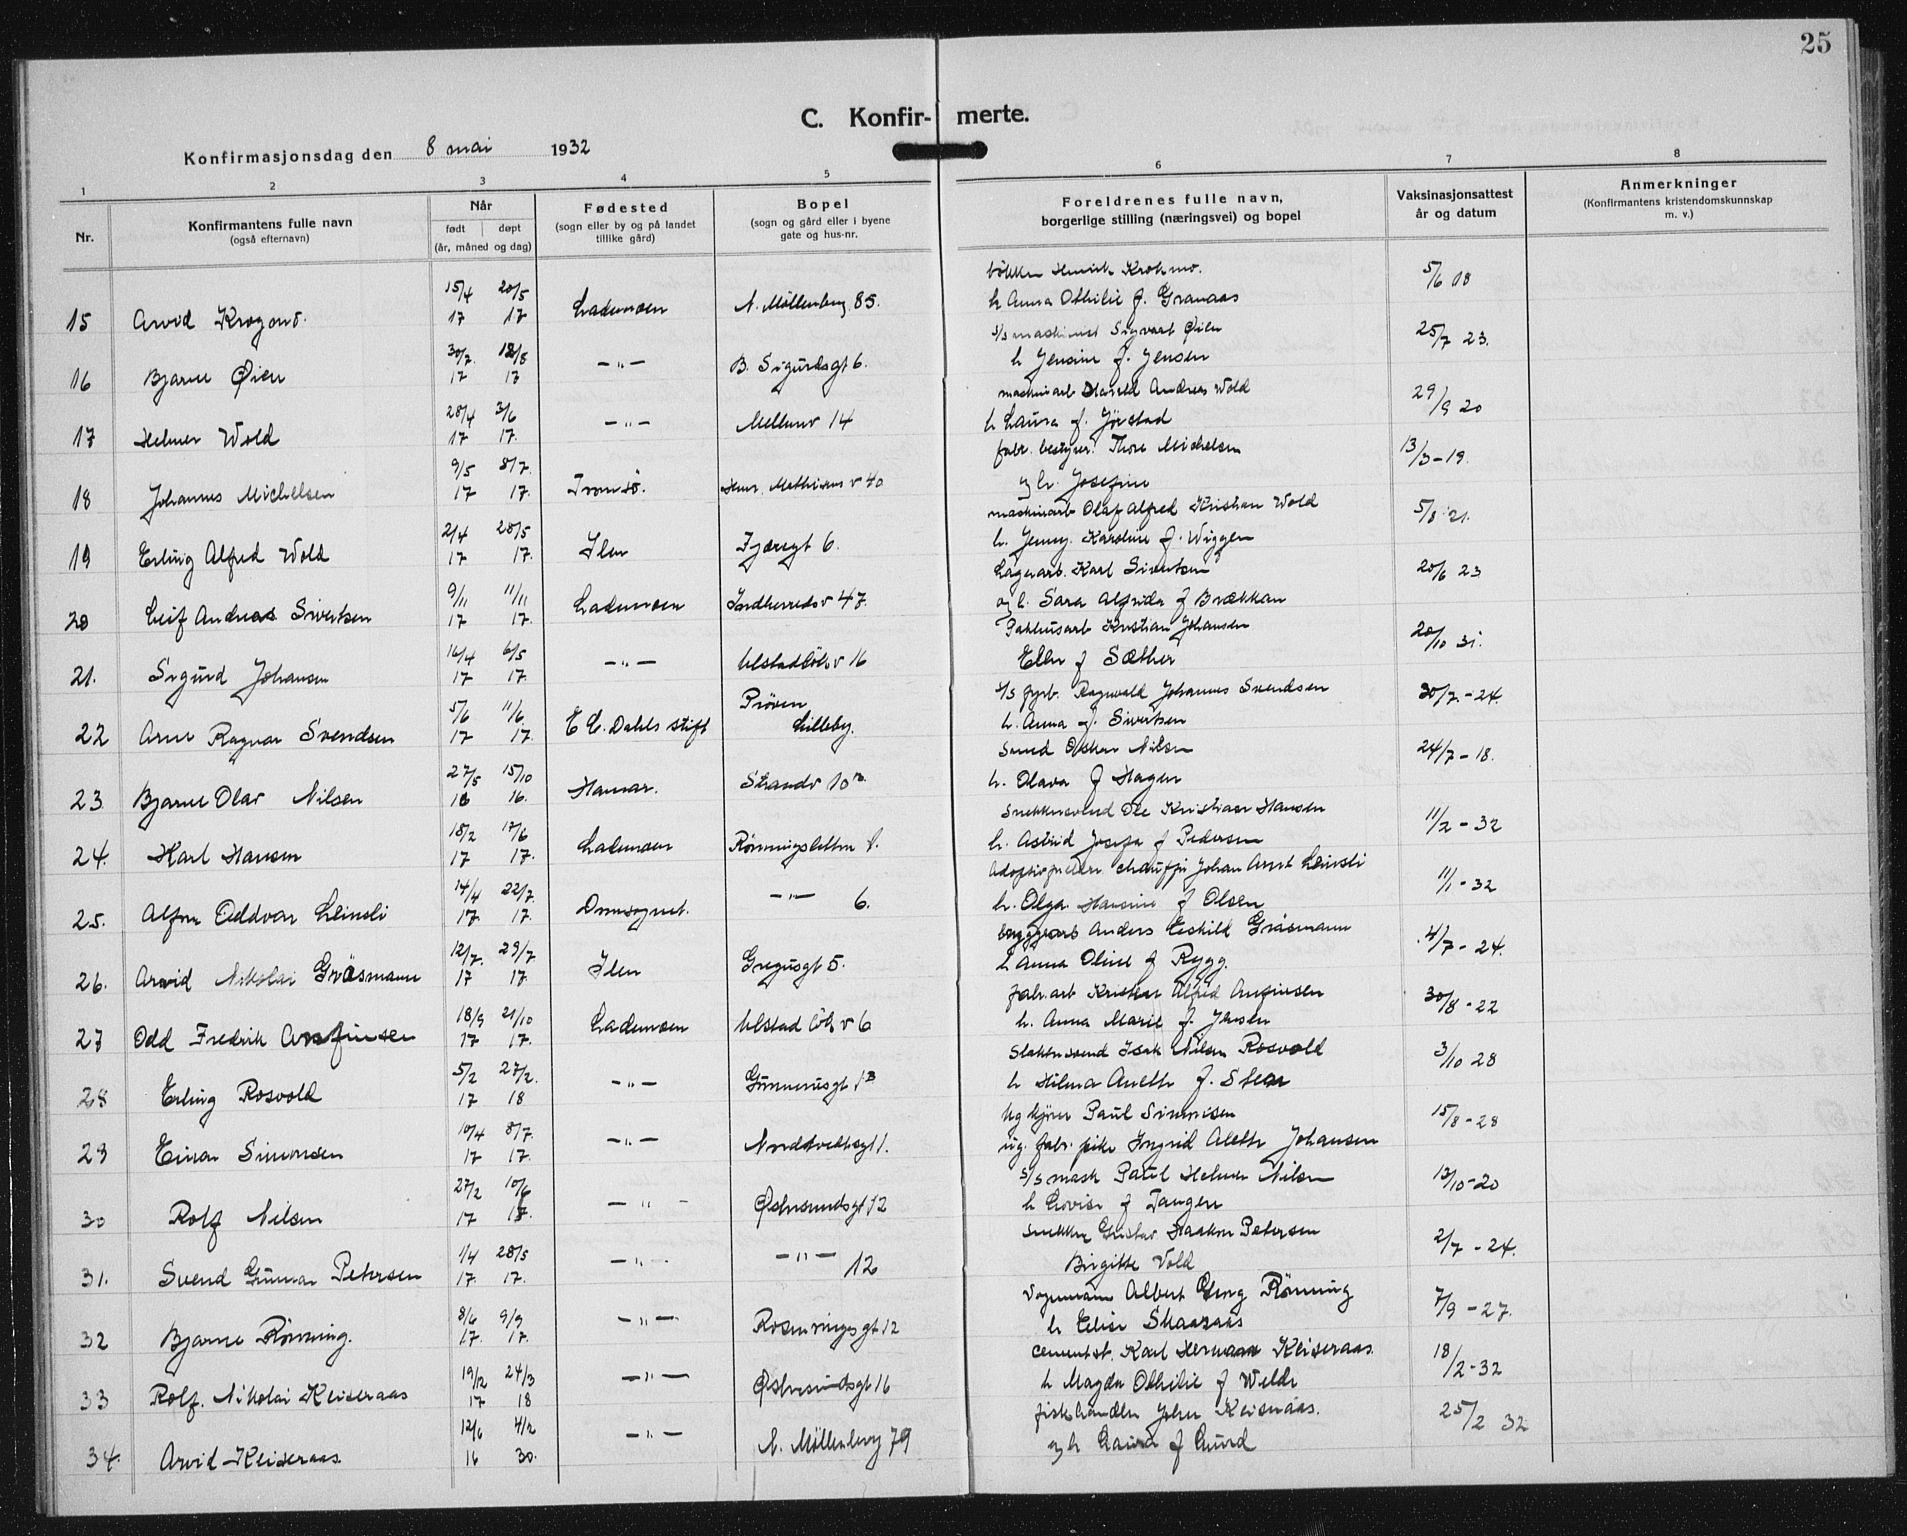 25
C. Konfir- merte.
Konfirmasjonsdag den 8 mai 1932
1 2 3 4 5 6 7 8
Nr.
Konfirmantens fulle navn
(også efternavn)
Når
født døpt
(år, måned og dag)
Fødested
(sogn eller by og på landet
tillike gård)
Bopel
(sogn og gård eller i byene
gate og hus-nr.
Foreldrenes fulle navn,
borgerlige stilling (næringsvei) og bopel
Vaksinasjonsattest
år og datum
Anmerkninger
(Konfirmantens kristendomskunnskap
m. v.)
15/4 20/5 Henrik 5/6 08
15 Arvid 17 17 Lademoen N. Møllenberg 85. h Anna Othilie f. Granaas
30/7. 18/8 s/s maskinist Sigvart Øien 25/7 23.
16 Bjarne Øien 17 17 —"— B. Sigurdsgt 6. h Jensine f. Jensen
28/4 3/6 maskinarb Harald Andreas Wold 29/9 20
17 Helmer Wold 17 17. —"— Mellemv 14 h Laura f. Jørstad
9/5 8/7. fabr. bestyrer Thore Michelsen 13/3-19.
18 Johannes Michelsen 17 17. Tromsö. Henr. Mathisens v 40 og h. Josefine
21/4 28/5 maskinarb Olaf Alfred Kristian Wold 5/8 21.
19 Erling Alfred Wold 17 17. Ilen Fjæregt 6. h. Jenny Karoline f. Wiggen
9/11 11/11 Lagerarb. Karl Sivertsen 20/6 23
20 Leif Andreas Sivertsen 17 17. Lademoen Indherredsv 47. og h. Sara Alfrida f Brækkan
16/4 6/5 Pakhusarb Kristian Johansen 20/10 31.
21. Sigurd Johansen 17 17. —"— Ulstadløk v 16 Ellen f Sæther
5/6 11/6 Prøven s/s fyrb. Ragnvald Johannes Svendsen 30/7.-24.
22 Arne Ragnar Svendsen 17 17. E C. Dahls stift Lilleby. h. Anna f. Sivertsen
27/5 15/10 Smed Oskar Nilsen 24/7-18.
23 Bjarne Olav Nilsen 16 16. Hamar. Strandv 10 h. Olava f Hagen
18/2 17/6 Snekkersvend Ole Kristian Hansen 11/2-32
24. Karl Hansen 17 17. Lademoen Rønningsletten h. Astrid Josefa f Pedersen
14/4 22/7. Adoptivforeldre chauffør Johan Arnt Leinsli 11/1-32
25. Alfon Oddvar Leinsli 17 17. Domsognet. —"— 6. h. Olga Hansine f Olsen
12/7. 29/7 bryggearb Anders Eskild Gräsmann 4/7-24.
26. Arvid Nikolai Gräsmann 17 17. Ilen Gregusgt 5. h Anna Oline f Rygg.
18/9 21/10 fabr.arb Kristian Alfred Anfinsen 30/8-22
27 Odd Fredrik Anfinsen 17 17. Lademoen Ulstadløk v 6 h. Anna Marie f. Jensen
5/2 27/2. Slaktersvend Isak Nilsen Rosvold 3/10 28
28 Erling Rosvold 17 18 —"— Gunnerusgt 1B h Hilma Anette f.
10/4 8/7. Ug kjører Paul Simonsen 15/8-28
29 Einar Simonsen 17 17. —"— Nordtvedtsgt 1. ug. fabr. pike Ingrid Alette Johansen
27/2 10/6 s/s mask Paul Helmer Nilsen 12/10-20
30 Rolf Nilsen 17 17. —"— Østersundsgt 12 h Lovise f Tangen
1/4 28/5 snekker Gustav Haakon Petersen 2/7-24.
31. Svend Gunnar Petersen 17. 17. —"— —"— 12 Birgitte Vold
8/6 9/9 Vognmann Albert Georg Rønning 7/9-27.
32 Bjarne Rønning. 17. 17. —"— Rosenborgsgt 12 h Elise Skaaraas
19/12 24/3 cementst. Karl Herman Keiseraas 18/2-32
33 Rolf. Nikolai Keiseraas 17 18 —"— Østersundsgt 16 h Magda Othilie f Welde
12/6 4/2 fiskehandler John Keiseraas. 25/2 32
34. Arvid Keiseraas 16 30. —"— N. Møllenberg 79 og h Laura f Lund